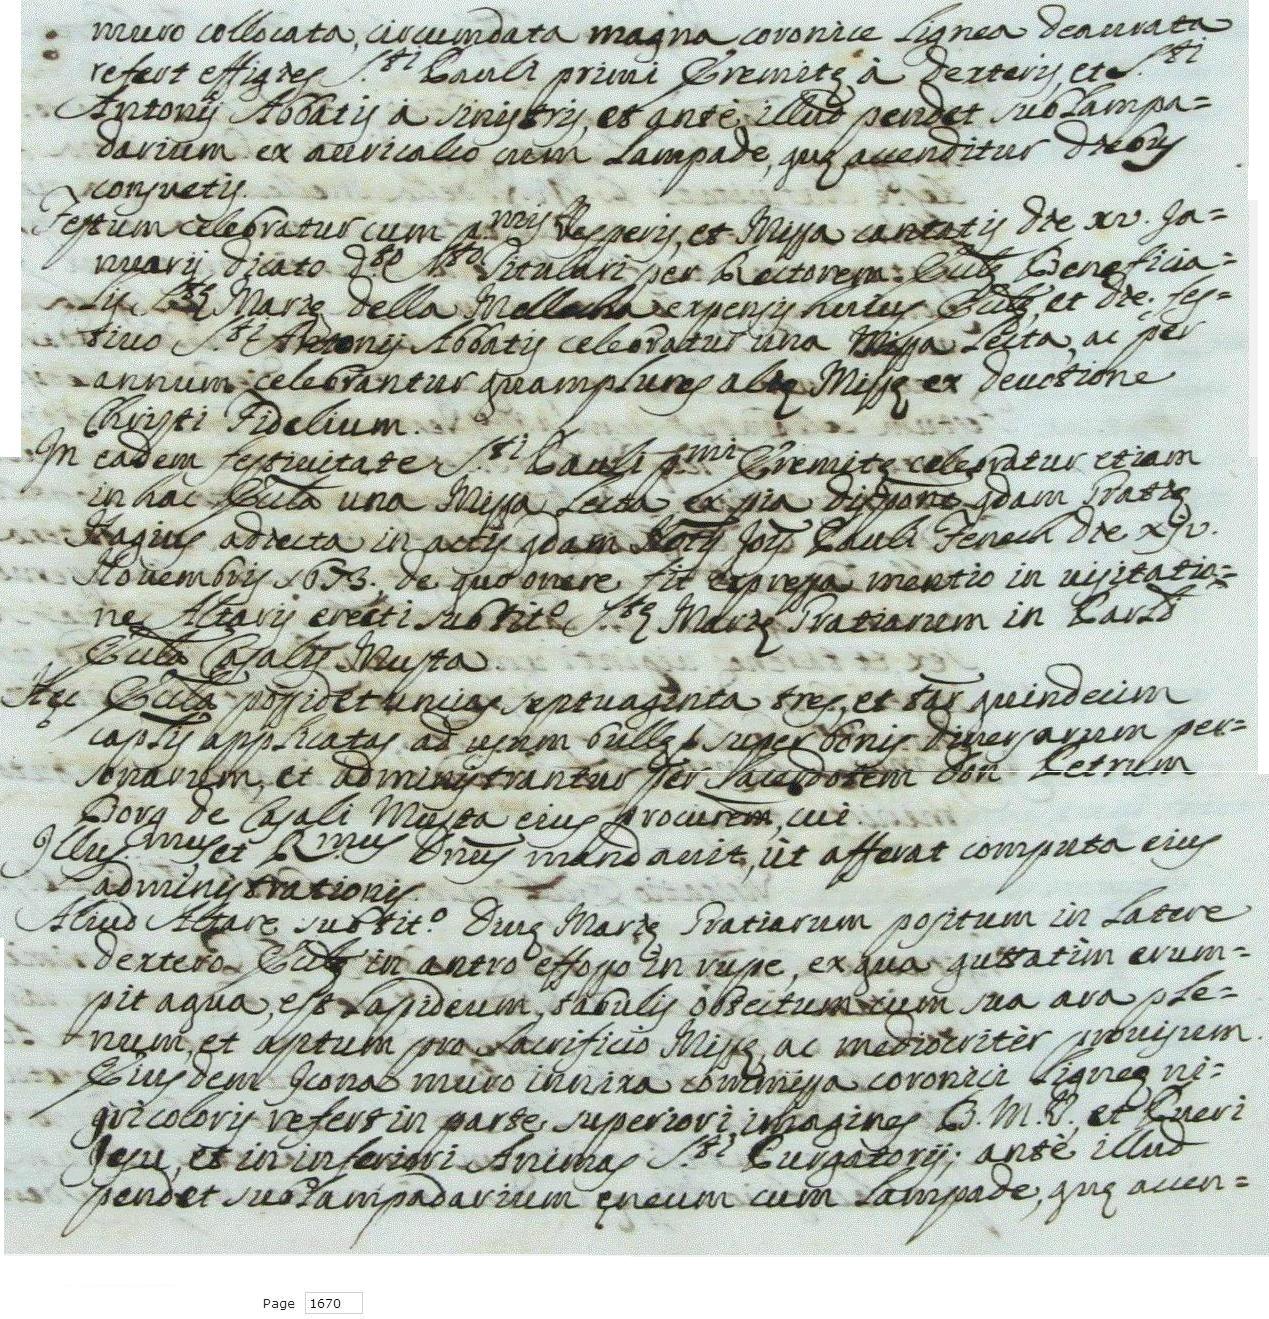 muro collocata, circumdata magna coronice lignea deaurata
refert effigies S.ti Pauli primi Eremitę à dexteris, et S.ti
Antonij Abbatis à sinistris, et antè illud pendet sublampa=
darium ex auricalco cum lampade, quę accenditur diebus
consuetis.
Festum celebratur cum p.mis Vesperis, et Missa cantatis die xv. Ja=
nuarij dicato Sto Titulari per Rectorem Ecclę Beneficia=
lis S.tę Marię della Mellecha expensis huius Ecclę, et die fes=
tiuo S.ti Antonij Abbatis celebratur una Missa lecta, ac per
annum celebrantur quamplures alię Missę ex deuotione
Christi Fidelium.
In eadem festiuitate S.ti Pauli p.mi Eremitę celebratur etiam
in hac Eccla una Missa lecta ex pia dispone qdam Gratię
adiecta in actis qdam Notij Jois Pauli Fenech die xiv.
Novembris 1653. de quo onere fit expressa mentio in uisitatio=
ne Altaris erecti sub tit.o S.tę Marię Gratiarum in Parli
Eccla Casalis Musta
Hęc Eccla possidet uncias septuaginta tres, et tar quindecim
caplis applicatas ad usum bullę super bonis diuersarum per=
sonarum, et administrantur per Sacerdotem Don Petrum
Borg de Casali Musta eius procurem, cui
Illus.mus, et R.mus Dnus mandauit, ut afferat computa eius
administrationis.
Aliud Altare sub tit.o Diuę Marię Gratiarum positum in latere
dextero Ecclę in antro effosso in rupe, ex qua guttatim erum=
pit aqua, est lapideum, tabulis obtectum cum sua ara ple=
num, et aptum pro sacrificio Missę, ac mediocritèr prouisum.
Eiusdem Icona muro innixa commissa coronici ligneę ni=
gri coloris refert in parte superiori imagines B. M. V. et Pueri
Jesu, et in inferiori Animas S.ti Purgatorij; antè illud
pendet sublampadarium ęneum cum lampade, quę accen=
Page 1670